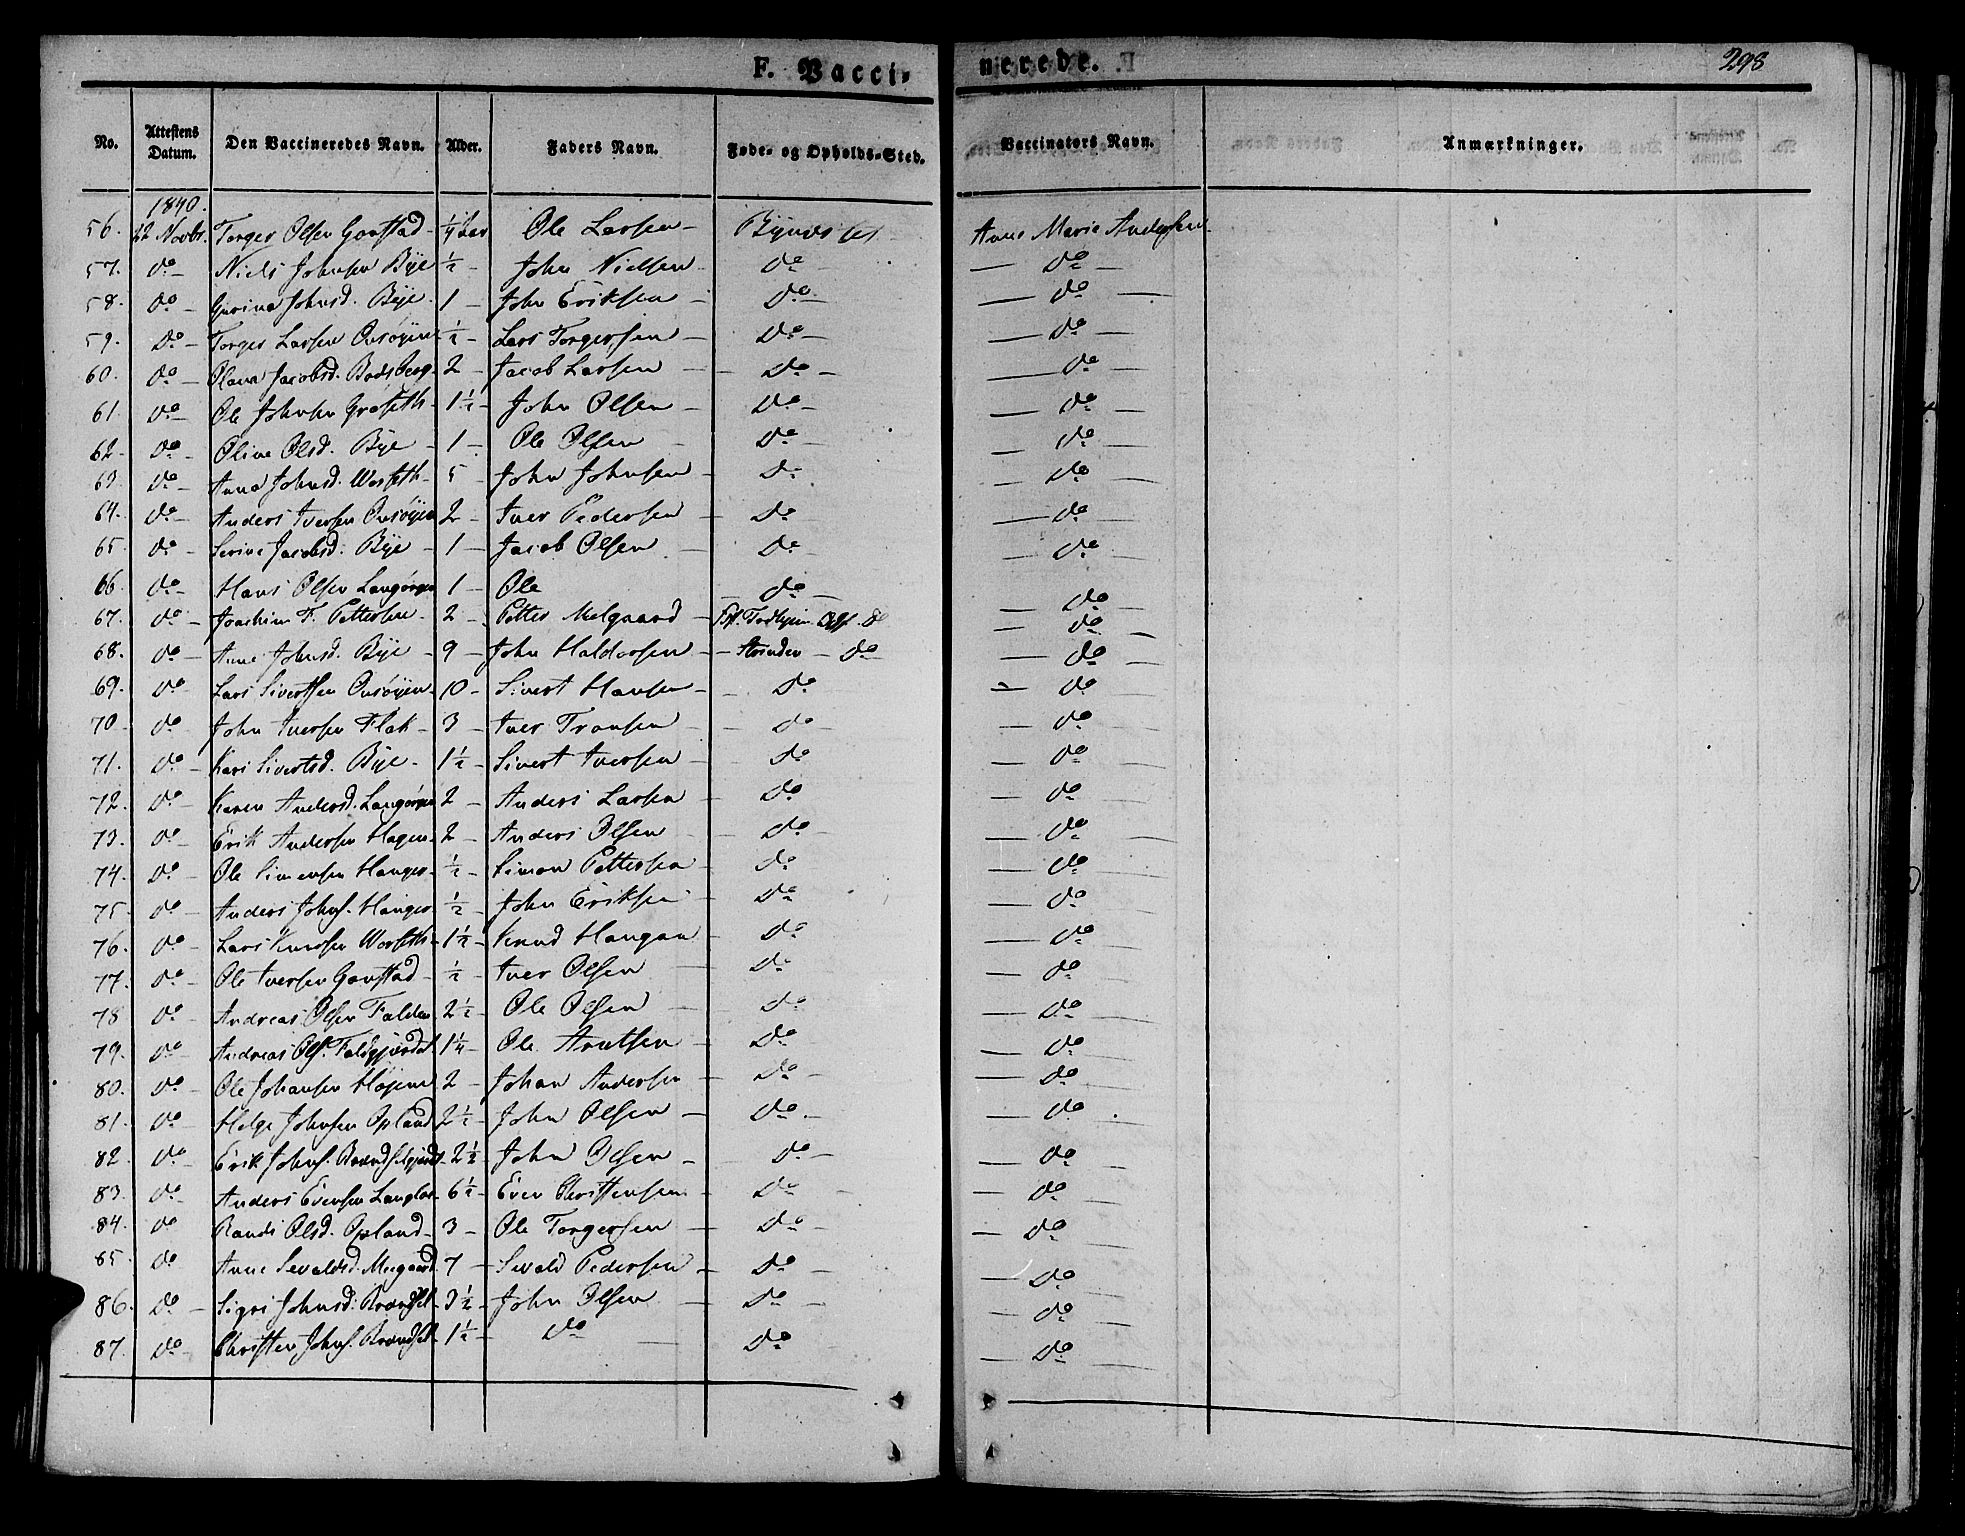 F. Vacci- nerede. 298
No. Attestens Datum. Den Vaccineredes Navn. Alder. Faders Navn. Føde- og Opholds-Sted. Vaccinators Navn. Anmærkninger.
1840.
56. 22 Novbr. Torger Olsen Gaustad - 1/4 Aar Ole Larsen - Bynesset Anne Marie Andersen
57. do - Niels Johnsen Bye 1/2 - John Nielsen - do - - do -
58. do - Gurina Johnsd. Bye - 1 - John Eriksen - do - - do -
59. do - Torger Larsen Onsøyen 1/2 - Lars Torgersen - do - - do -
60. do - Olava Jacobsd. Bodsberg - 2 - Jacob Larsen - do - - do -
61. do - Ole Johnsen Graseth - 1 1/2 - John Olsen - do - - do -
62. do - Oline Olsd. Bye - 1 - Ole Olsen - do - - do -
63. do - Anna Johnsd. Worseth - 5 - John Johnsen - do - do -
64. do - Anders Iversen Onsøyen 2 - Iver Pedersen - do - do -
65. do - Serine Jacobsd. Bye - 1 - Jacob Olsen - do - - do -
66. do - Hans Olsen Langørgen 1 - Ole - do - - do -
67. do - Joachim F. Pettersen - 2 - Petter Melgaard - do - do
68. do - Anne Johnsd. Bye - 9 - John Haldorsen - Strinden - do - - do -
69. do - Lars Sivertsen Onsøyen - 10 - Sivert Hansen - - do - do -
70. do - John Iversen Flak - 3 - Iver Tronsen - do - - do -
71. do - Kari Sivertsd. Bye - 1 1/2 - Sivert Iversen - do - do -
72. do - Karen Andersd. Langørgen 2 - Anders Larsen - do - - do -
73. do - Erik Andersen Hagen - 2 - Anders Olsen - do - - do -
74. do - Ole Simensen Hanger - 1/2 - Simon Pettersen - do - do -
75. do - Anders Johns. Hanger 1/2 - John Eriksen - do - do -
76. do - Lars Knudsen Worseth - 1 1/2 - Knud Haugan do - - do -
77. do - Ole Iversen Gaustad - 1/2 - Iver Olsen - do - - do -
78 do - Andreas Olsen Falden 2 1/2 - Ole Olsen - do - - do -
79. do - Andreas Ols. 1 1/4 - Ole Arntsen - do - do -
80. do - Ole Johansen Højem 2 - Johan Andersen - do - - do -
81. do - Helge Johnsen Opland 2 1/2 - John Olsen - do - - do -
82. do - Erik Johns. 2 1/2 - John Olsen - do - - do -
83. do - Anders Evensen 6 1/2 - Even Christensen - do - - do -
84. do Randi Olsd. Opland - 3 - Ole Torgersen - do - - do -
85. do Anne Sevaldsd. Meegaard 7 - Sevald Pedersen - do - - do -
86. do - Sigri Johnsd. Brandsel - 3 1/2 - John Olsen - do - - do -
87. do - Christen Johns. Brandsel - 1 1/2 - do - do - do -